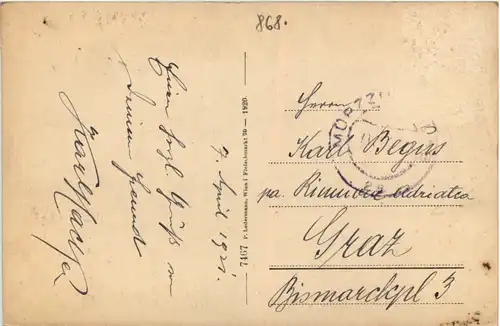 868.
Ein frzl. Gruß v
Deinem Freund
7. April 1921.
7467 P. Ledermann, Wien I Fleischmarkt 20 — 1920.
Herrn
Karl Begus
pa. Riunione Adriatica
Graz
Bismarckpl 3